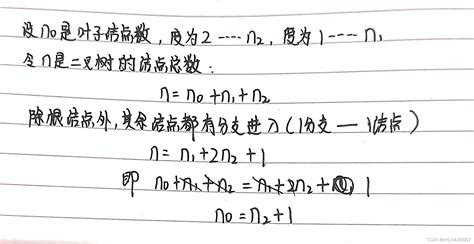 设n0是叶子结点数，度为2 ---- n2，度为1 ---- n1
令n是二叉树的结点总数：
n = n0 + n1 + n2
除根结点外，其余结点都有分支进入（1分支 — 1结点）
n = n1 + 2n2 + 1
即 n0 + n1 + n2 = n1 + 2n2 + 1
n0 = n2 + 1